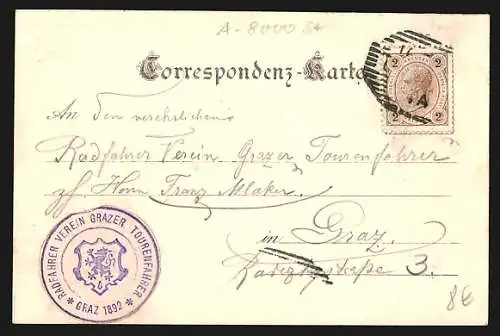 A-8000 St
Correspondenz-Karte
2 2
A
An den verehrlichen
Radfahrer Verein Grazer Tourenfahrer
zH Herrn Franz Mlaker
in Graz.
Radetzkystraße 3.
RADFAHRER VEREIN GRAZER TOURENFAHRER
* GRAZ 1892 *
8€